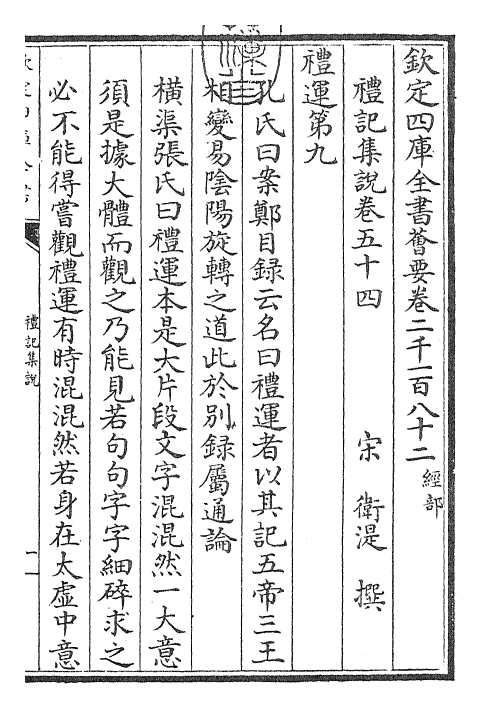 欽定四庫全書薈要卷二千一百八十二 經部
禮記集說卷五十四 宋 衛湜 撰
禮運第九
孔氏曰案鄭目録云名曰禮運者以其記五帝三王
相變易陰陽旋轉之道此於别録屬通論
橫渠張氏曰禮運本是大片段文字混混然一大意
須是據大體而觀之乃能見若句句字字細碎求之
必不能得嘗觀禮運有時混混然若身在太虛中意
禮記集說
一